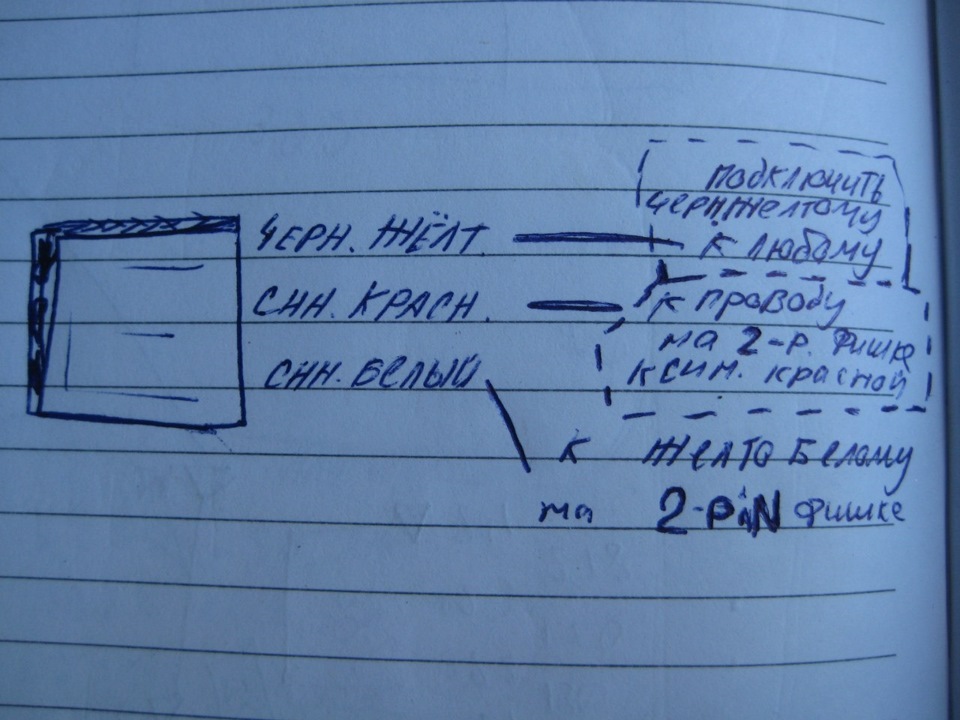 ЧЕРН. ЖЁЛТ.
СИН. КРАСН.
СИН. БЕЛЫЙ
подключить
черн. желтому
к любому
к проводу
на 2-р. фишке
к син. красной
к Желто Белому
на 2-PiN фишке